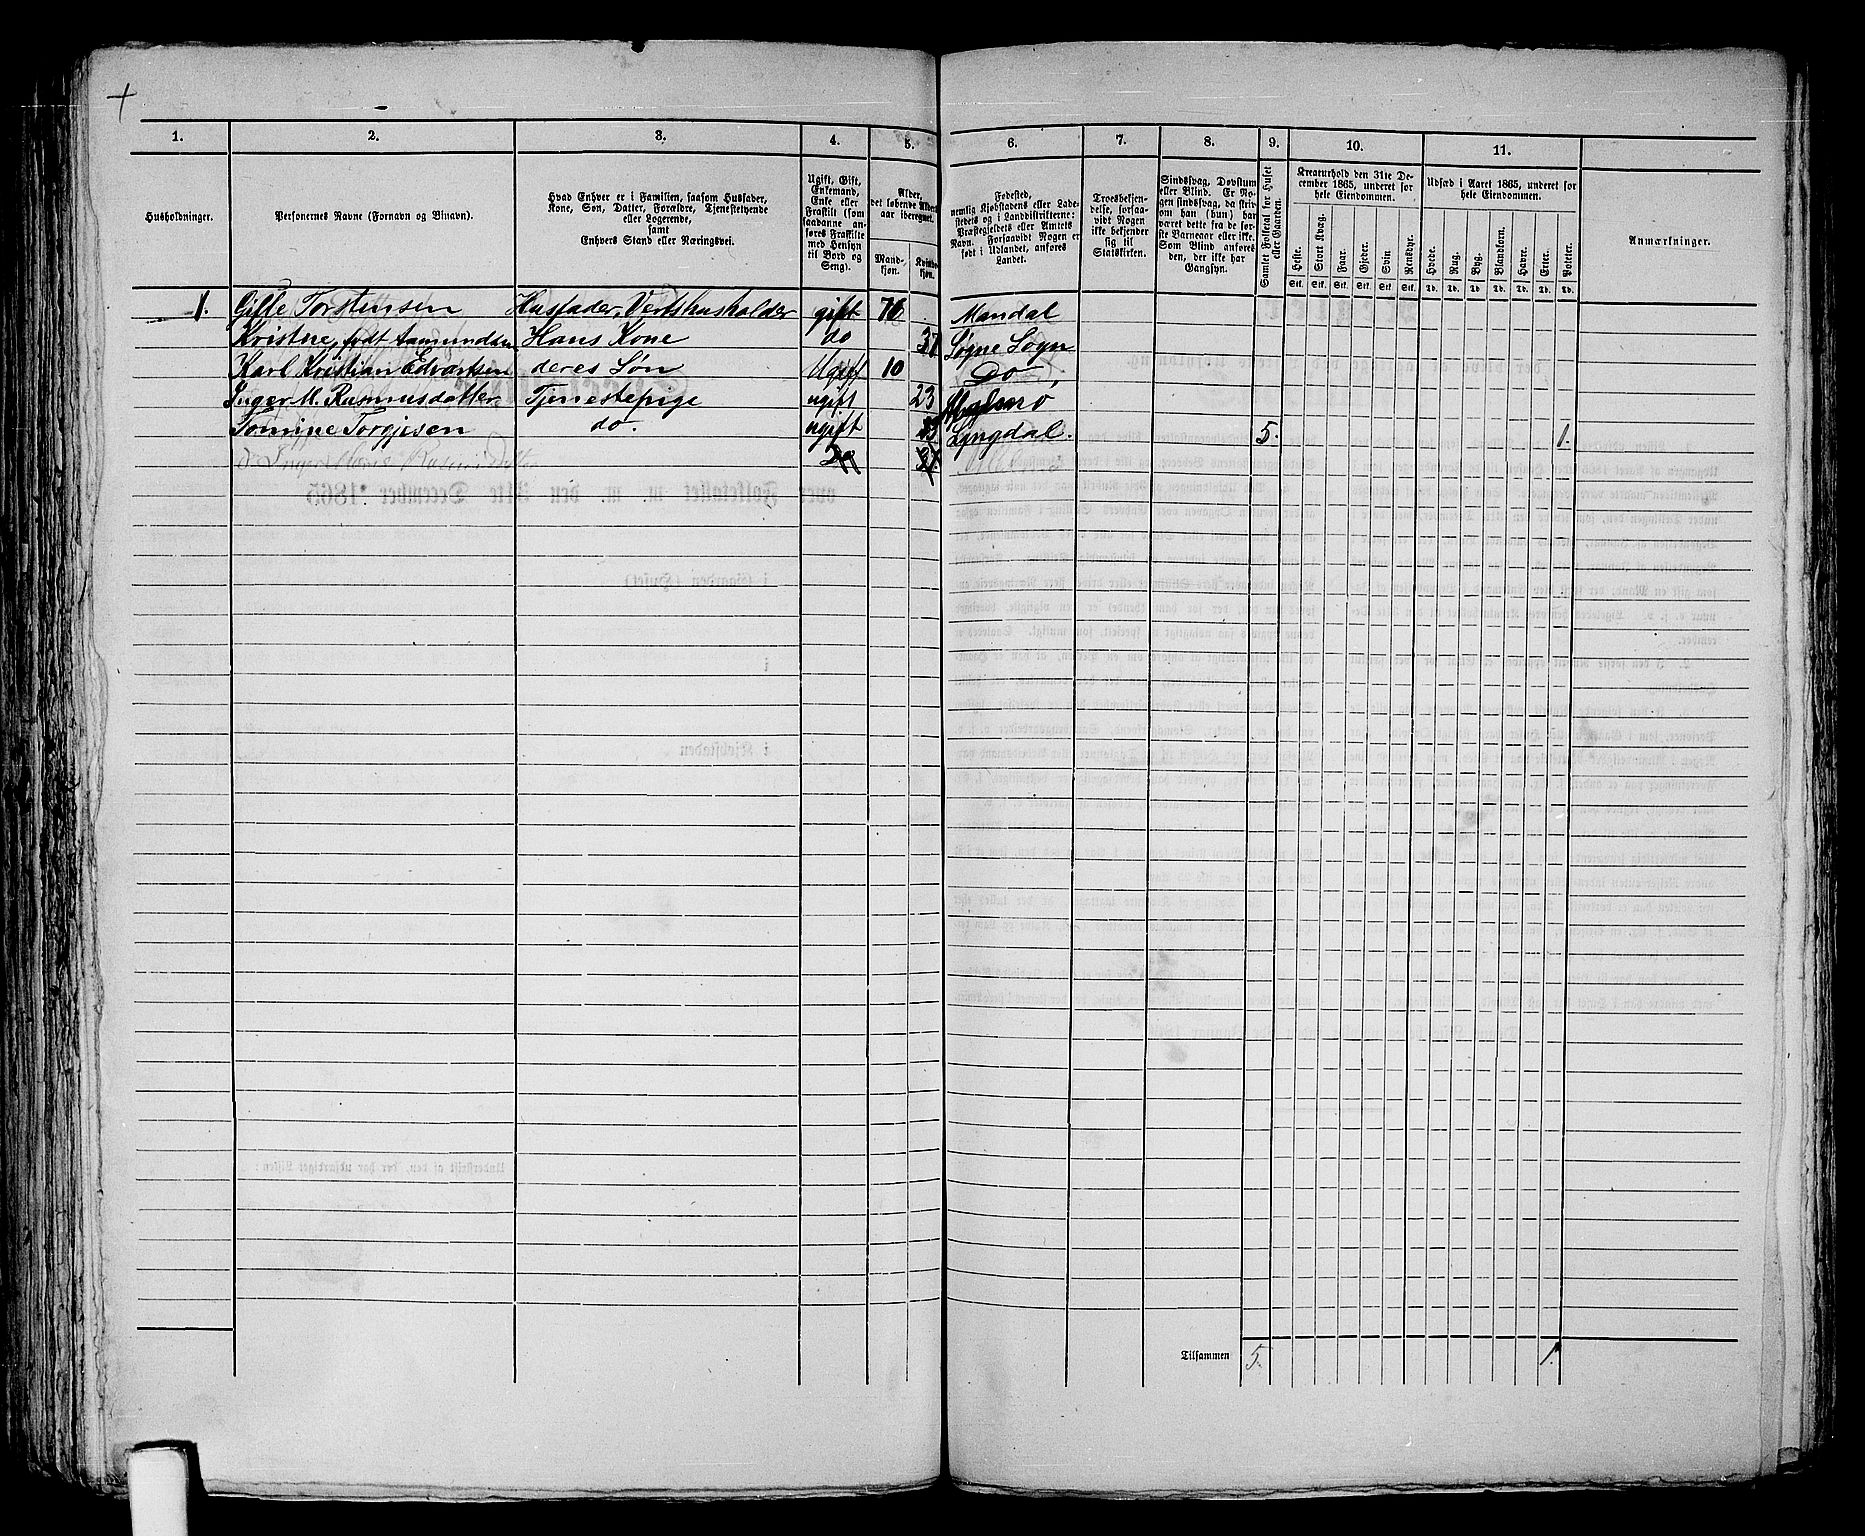 1. 2. 3. 4. 5. 6. 7. 8. 9. 10. 11.
Husholdninger.
Personernes Navne (Fornavn og Tilnavn).
Hvad Enhver er i Familien, saasom Husfader,
Kone, Søn, Datter, Forældre, Tjenestetyende
eller Logerende,
samt
Enhvers Stand eller Næringsvei.
Ugift, Gift,
Enkemand,
Enke eller
Fraskilt (som
saadanne an-
føres Fraskilte
med Hensyn
til Bord og
Seng).
Alder,
det løbende Alders-
aar iberegnet.
Mand-
kjøn.
Kvinde-
kjøn.
Fødested,
nemlig Kjøbstadens eller Lade-
stedets og i Landdistrikterne:
Præstegjeldets eller Amtets
Navn. Forsaavidt Nogen er
født i Udlandet, anføres
Landet.
Troesbekjen-
delse, forsaa-
vidt Nogen
ikke bekjender
sig til
Statskirken.
Sindssvag, Døvstum
eller Blind. Er No-
gen sindssvag, da skriv
om han (hun) har
været dette fra de før-
ste Barneaar eller ikke.
Som Blind anføres
den, der ikke har
Gangsyn.
Samlet Folketal for Huset
eller Gaarden.
Kreaturhold den 31te De-
cember 1865, underet for
hele Eiendommen.
Heste. Stort Kvæg. Faar. Gjeder. Svin Rensdyr.
Stk. Stk. Stk. Stk. Stk. Stk.
Udsæd i Aaret 1865, underet for
hele Eiendommen.
Hvede. Rug. Byg. Blandkorn. Havre. Erter. Poteter.
Td. Td. Td Td. Td. Td. Td.
Anmærkninger.
1. Gille Torstensen Husfader, Vertshusholder gift Mandal
Kristne, født Aamundsen Hans Kone do 37 Søgne Sogn
Karl Kristian Edvartsen deres Søn Ugift 10 Do,
Inger M. Rasmusdatter Tjenestepige ugift 23
Tomine Torgjesen do. ugift Lyngdal. 5. 1.
Inger Marie Rasmusdatter
Tilsammen 5. 1.